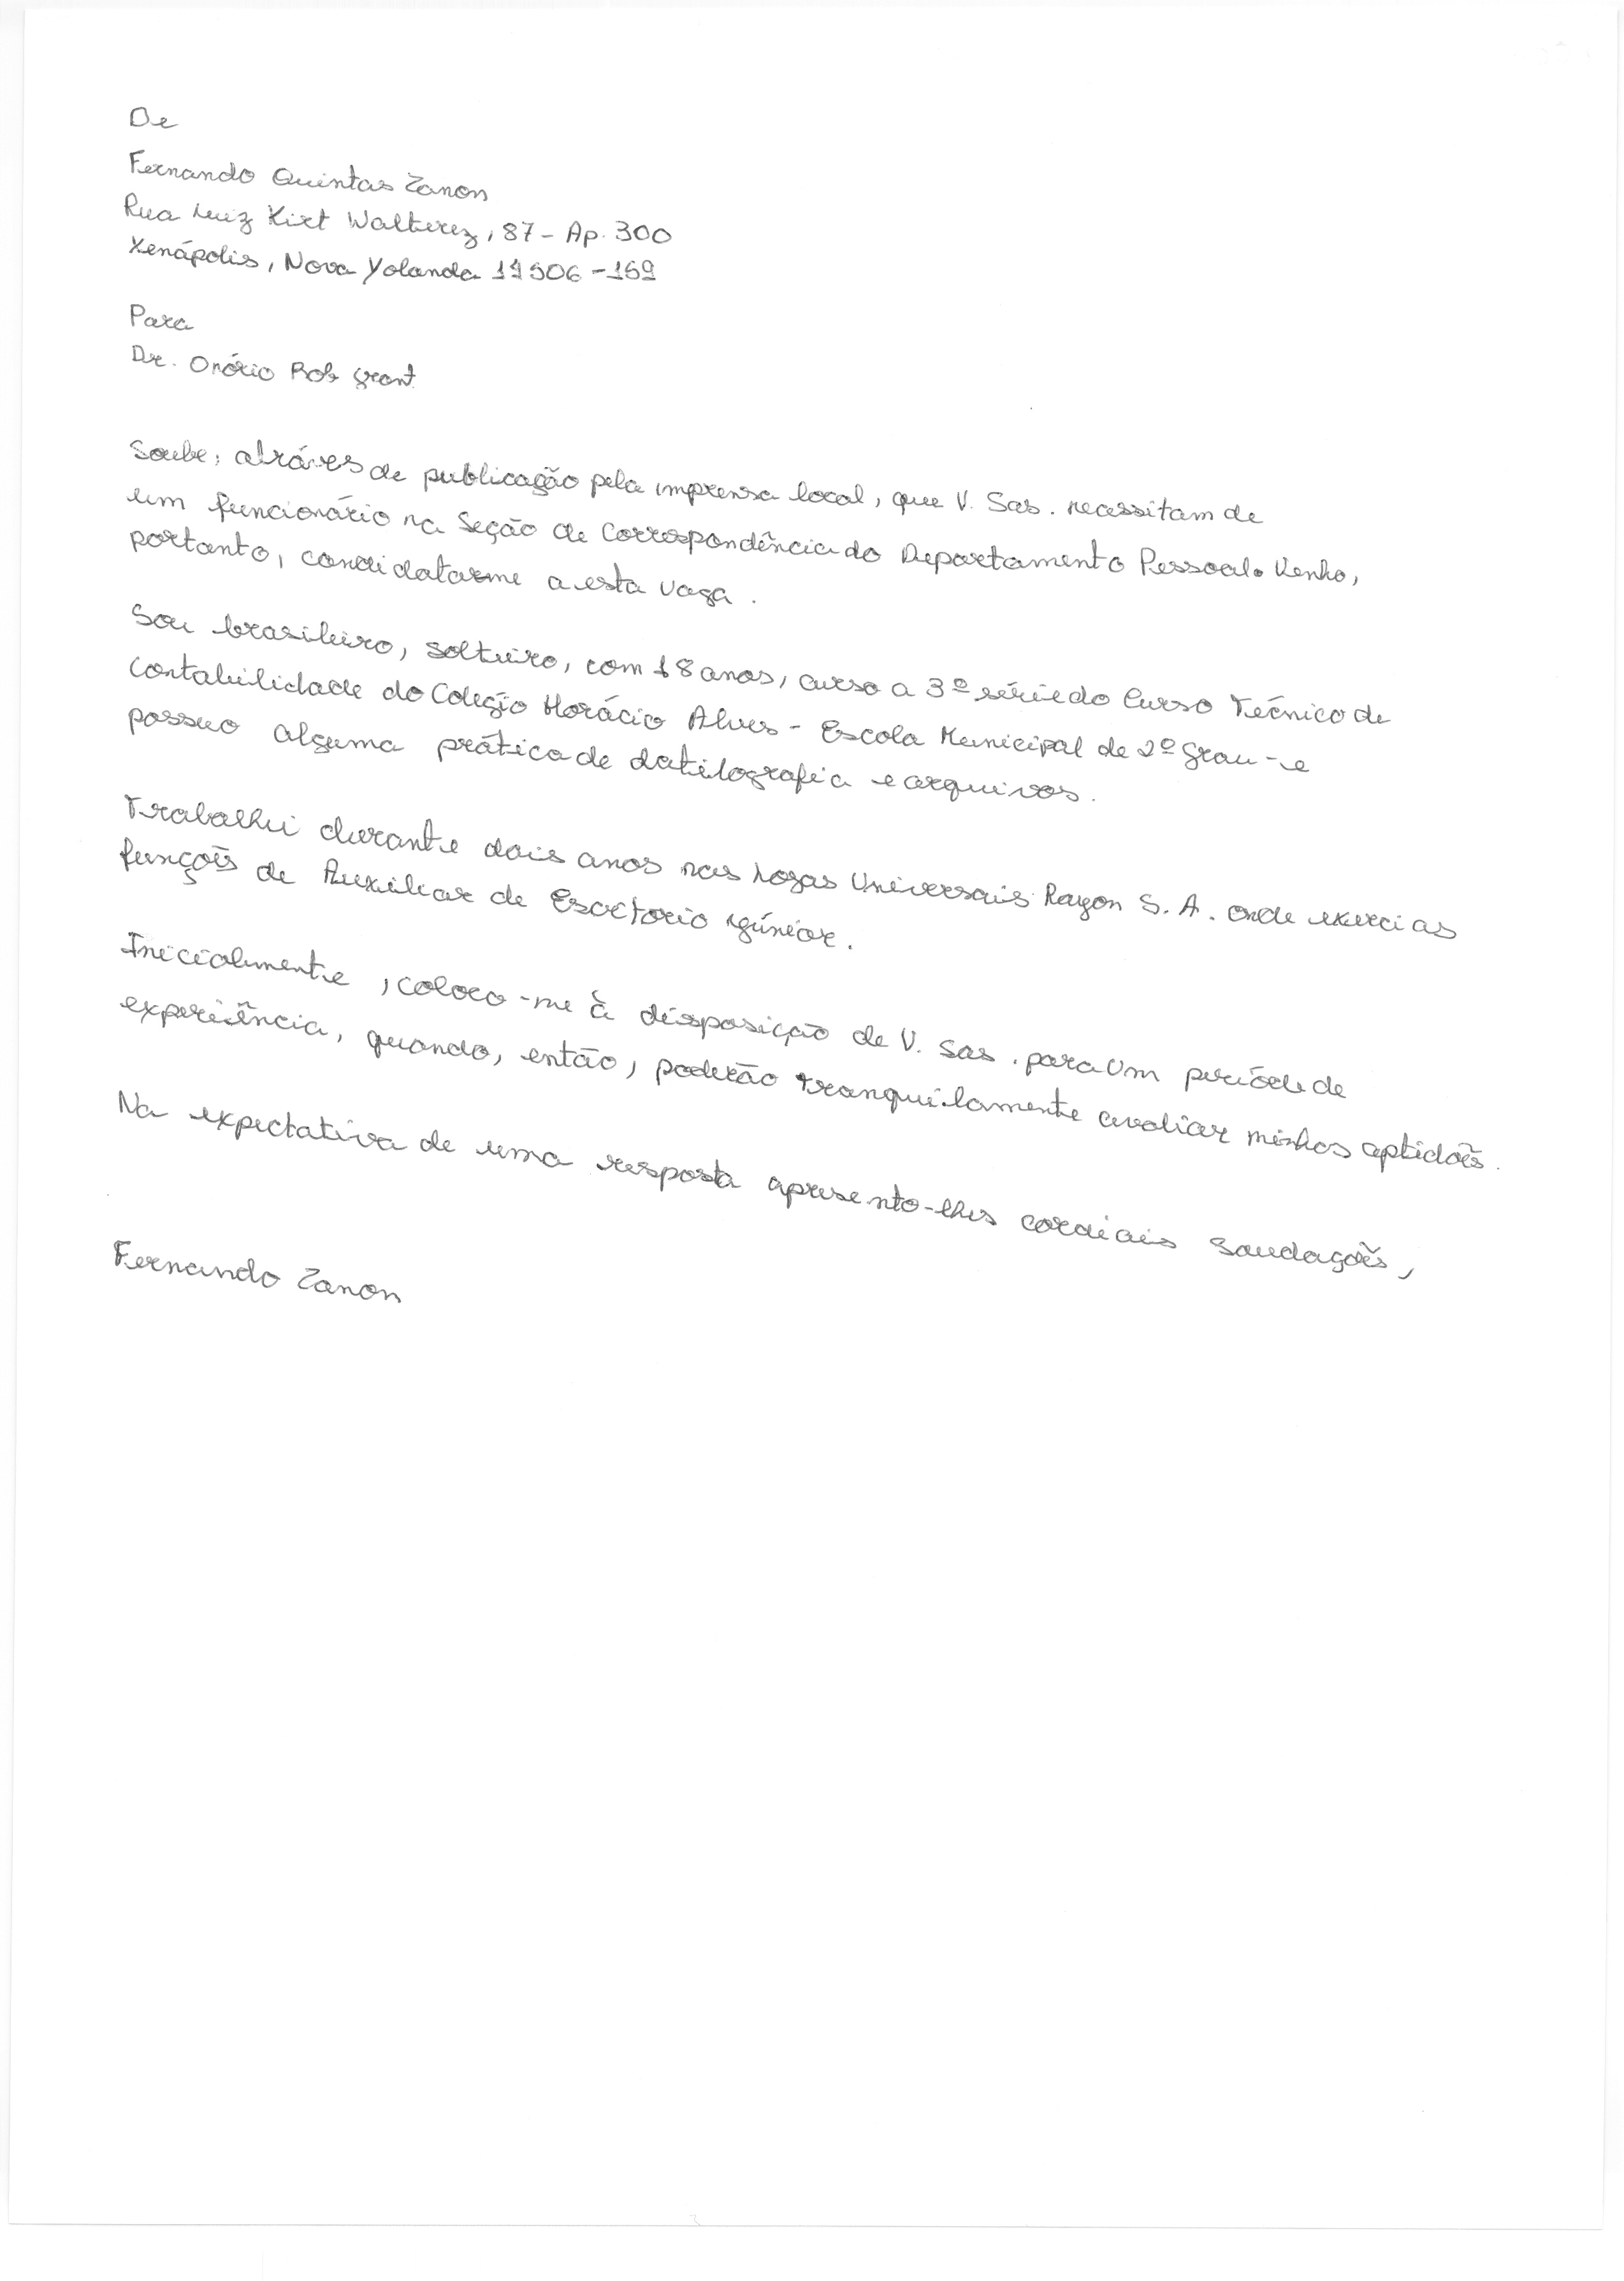 De
Fernando Quintas Zanon
Rua Luiz Kirt Walterez, 87 - Ap. 300
Xenápolis, Nova Yolanda 14506-159
Para
Dr. Onório Bob Grant
Soube, atráves de publicação pela imprensa local, que V. Sas. necessitam de
um funcionário na Seção de Correspondência do Departamento Pessoal. Venho,
portanto, candidatarme a esta vaga.
Sou brasileiro, solteiro, com 18 anos, curso a 3ª série do Curso Técnico de
Contabilidade do Colégio Horácio Alves - Escola Municipal de 2º grau - e
possuo alguma prática de datilografia e arquivos.
Trabalhei durante dois anos nas Lojas Universais Rayon S. A. onde exerci as
funções de Auxiliar de Escritorio
Inicialmente, coloco-me à disposição de V. Sas. para um período de
experiência, quando, então, poderão tranquilamente avaliar minhas aptidões.
Na expectativa de uma resposta apresento-lhes cordiais saudações,
Fernando Zanon